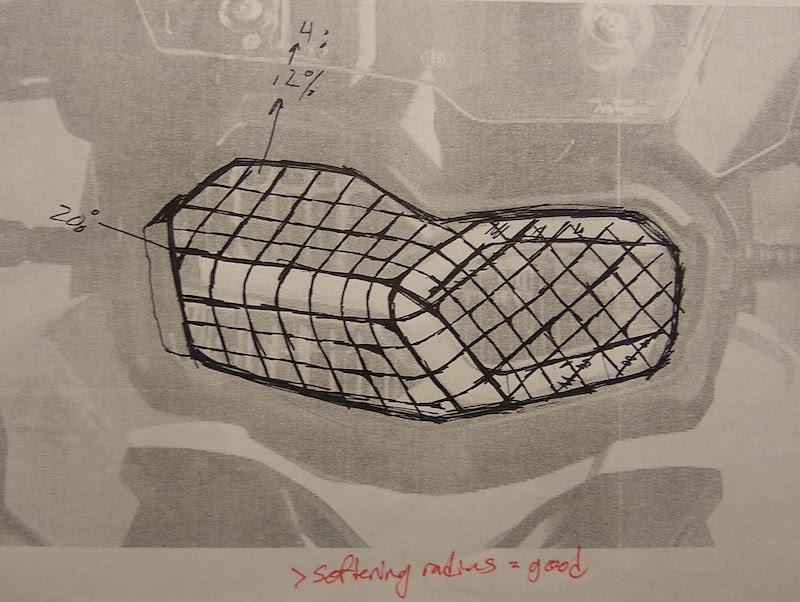 4%
12%
20%
>Softening radius = good